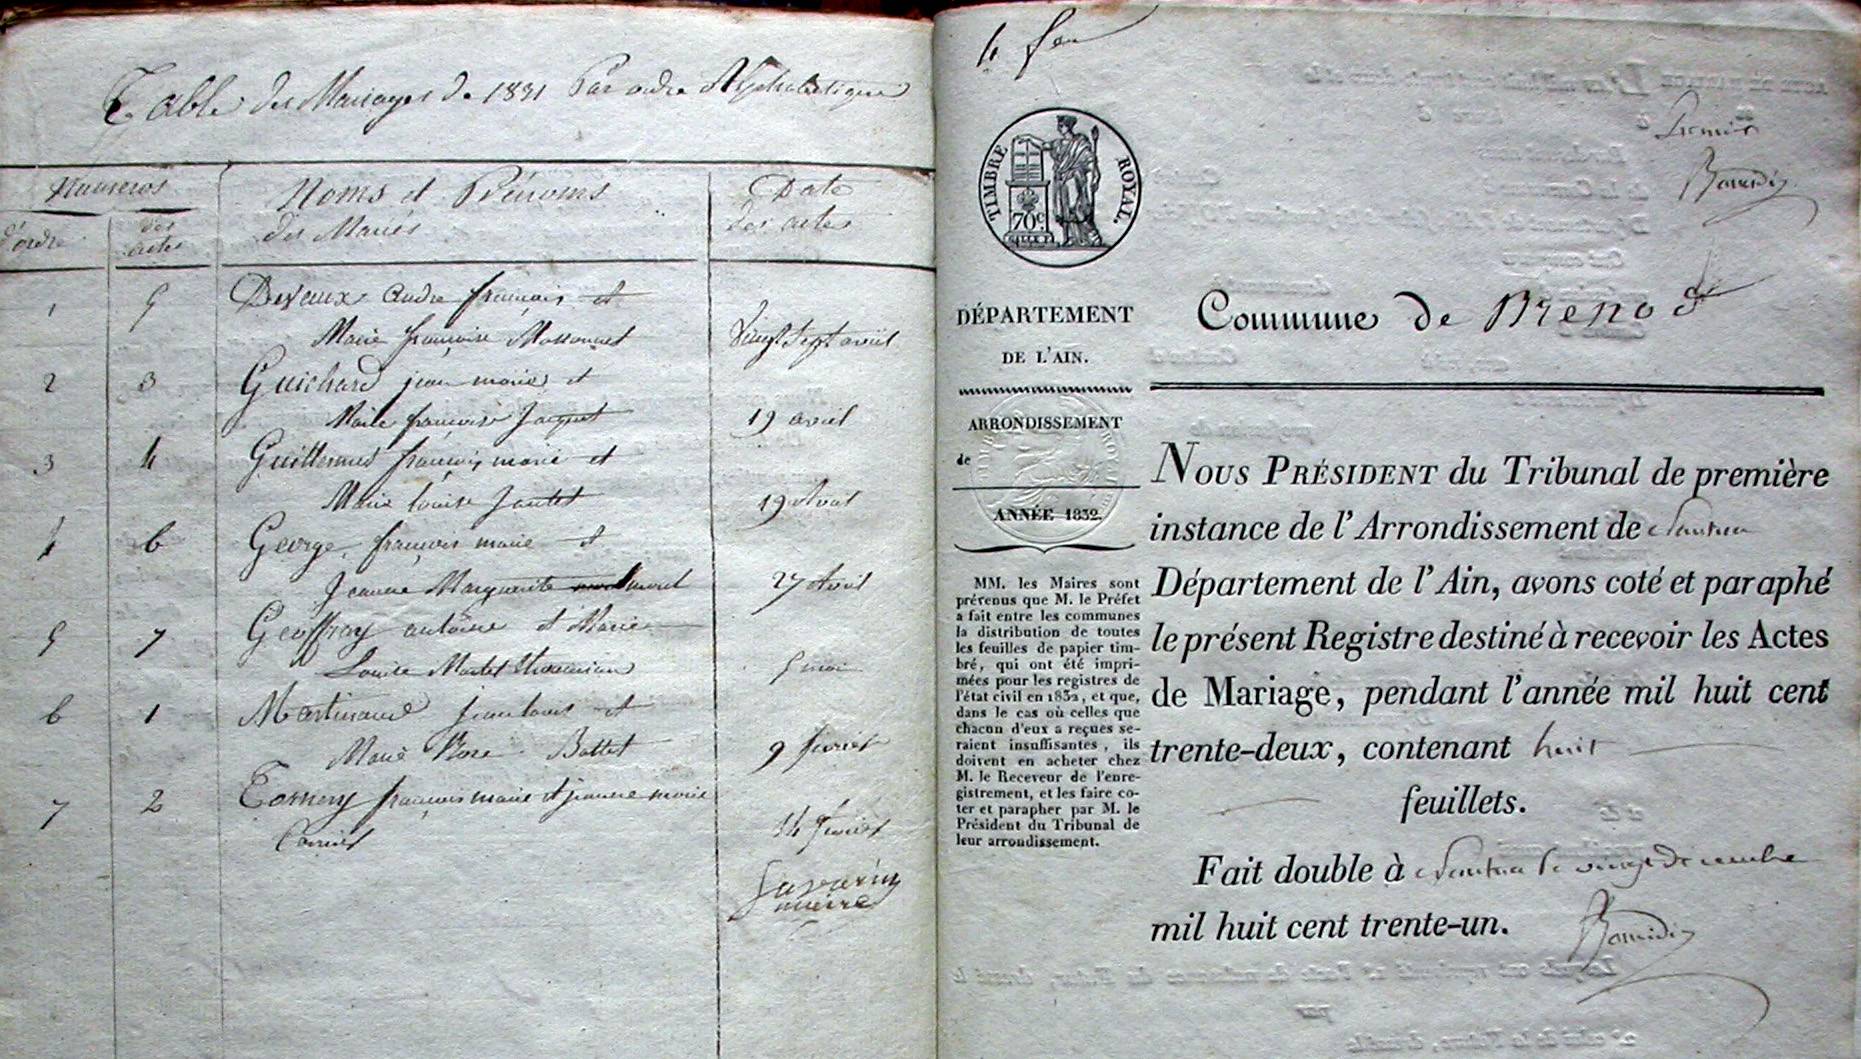 Table des Mariages de 1831 Par ordre Alphabetique
Numeros
Noms et Prénoms
Date
d'ordre
des
actes
des Mariés
des actes
1 5 Devaux andre françois et
Marie françoise Massonnet Vingt Sept avril
2 3 Guichard jean marie et
Marie françoise Jacquet 19 avril
3 4 Guillermet françois marie et
Marie louise Jantet 19 Avril
4 6 George françois marie et
Jeanne Marguerite 27 Avril
5 7 Geoffray antoine et Marie
Louise Martet 5 mai
6 1 Martinand jean louis et
Marie Rose Bottet 9 fevrier
7 2 françois marie et jeanne marie
Carrier 14 fevrier
Savarin
maire
4 feu
TIMBRE ROYAL.
70c.
Premier
DÉPARTEMENT
DE L'AIN.
Commune de Brenod
ARRONDISSEMENT
de
ANNÉE 1832.
MM. les Maires sont
prévenus que M. le Préfet
a fait entre les communes
la distribution de toutes
les feuilles de papier tim-
bré, qui ont été impri-
mées pour les registres de
l'état civil en 1832, et que,
dans le cas où celles que
chacun d'eux a reçues se-
raient insuffisantes, ils
doivent en acheter chez
M. le Receveur de l'enre-
gistrement, et les faire co-
ter et parapher par M. le
Président du Tribunal de
leur arrondissement.
NOUS PRÉSIDENT du Tribunal de première
instance de l'Arrondissement de Nantua
Département de l'Ain, avons coté et paraphé
le présent Registre destiné à recevoir les Actes
de Mariage, pendant l'année mil huit cent
trente-deux, contenant huit
feuillets.
Fait double à Nantua le vingt decembre
mil huit cent trente-un.